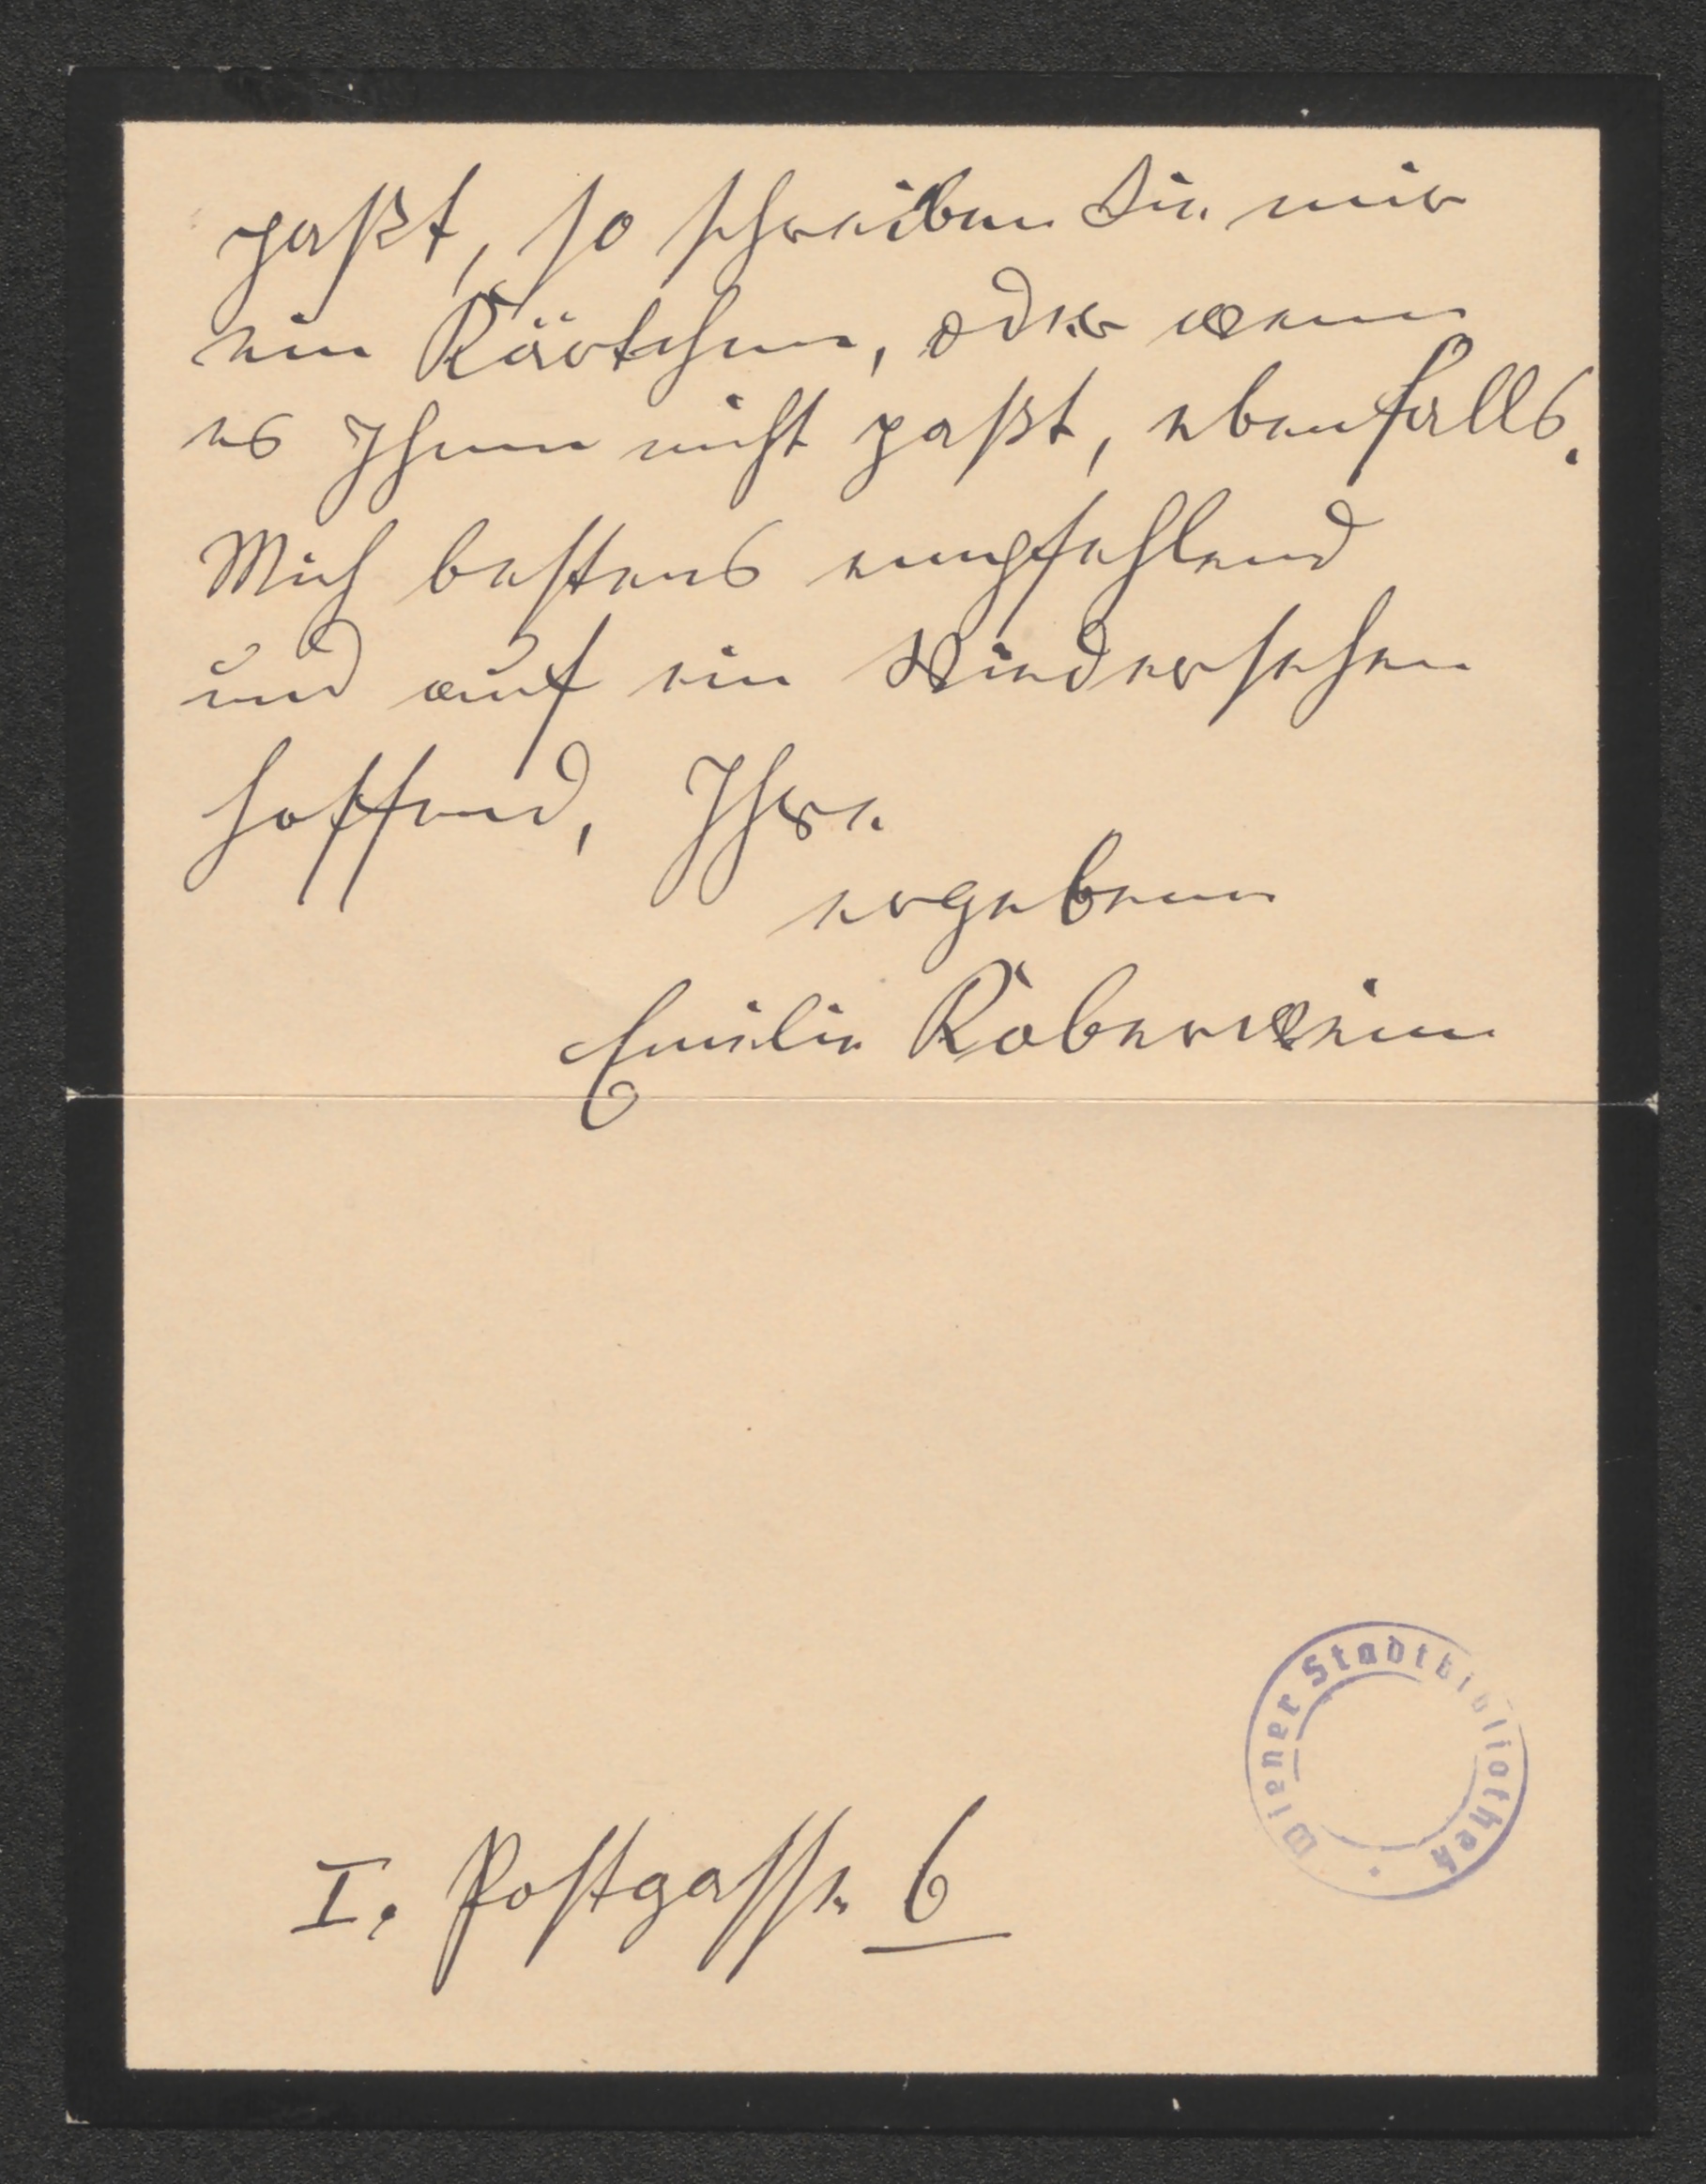 paßt, so schreiben Sie mir
ein Kärtchen, oder wenn
es Ihnen nicht paßt, ebenfalls.
Mich bestens empfehlend
und auf ein Wiedersehen
hoffend, Ihre
ergebene
Emilie Koberwein
Wiener Stadtbibliothek
I. Postgasse 6